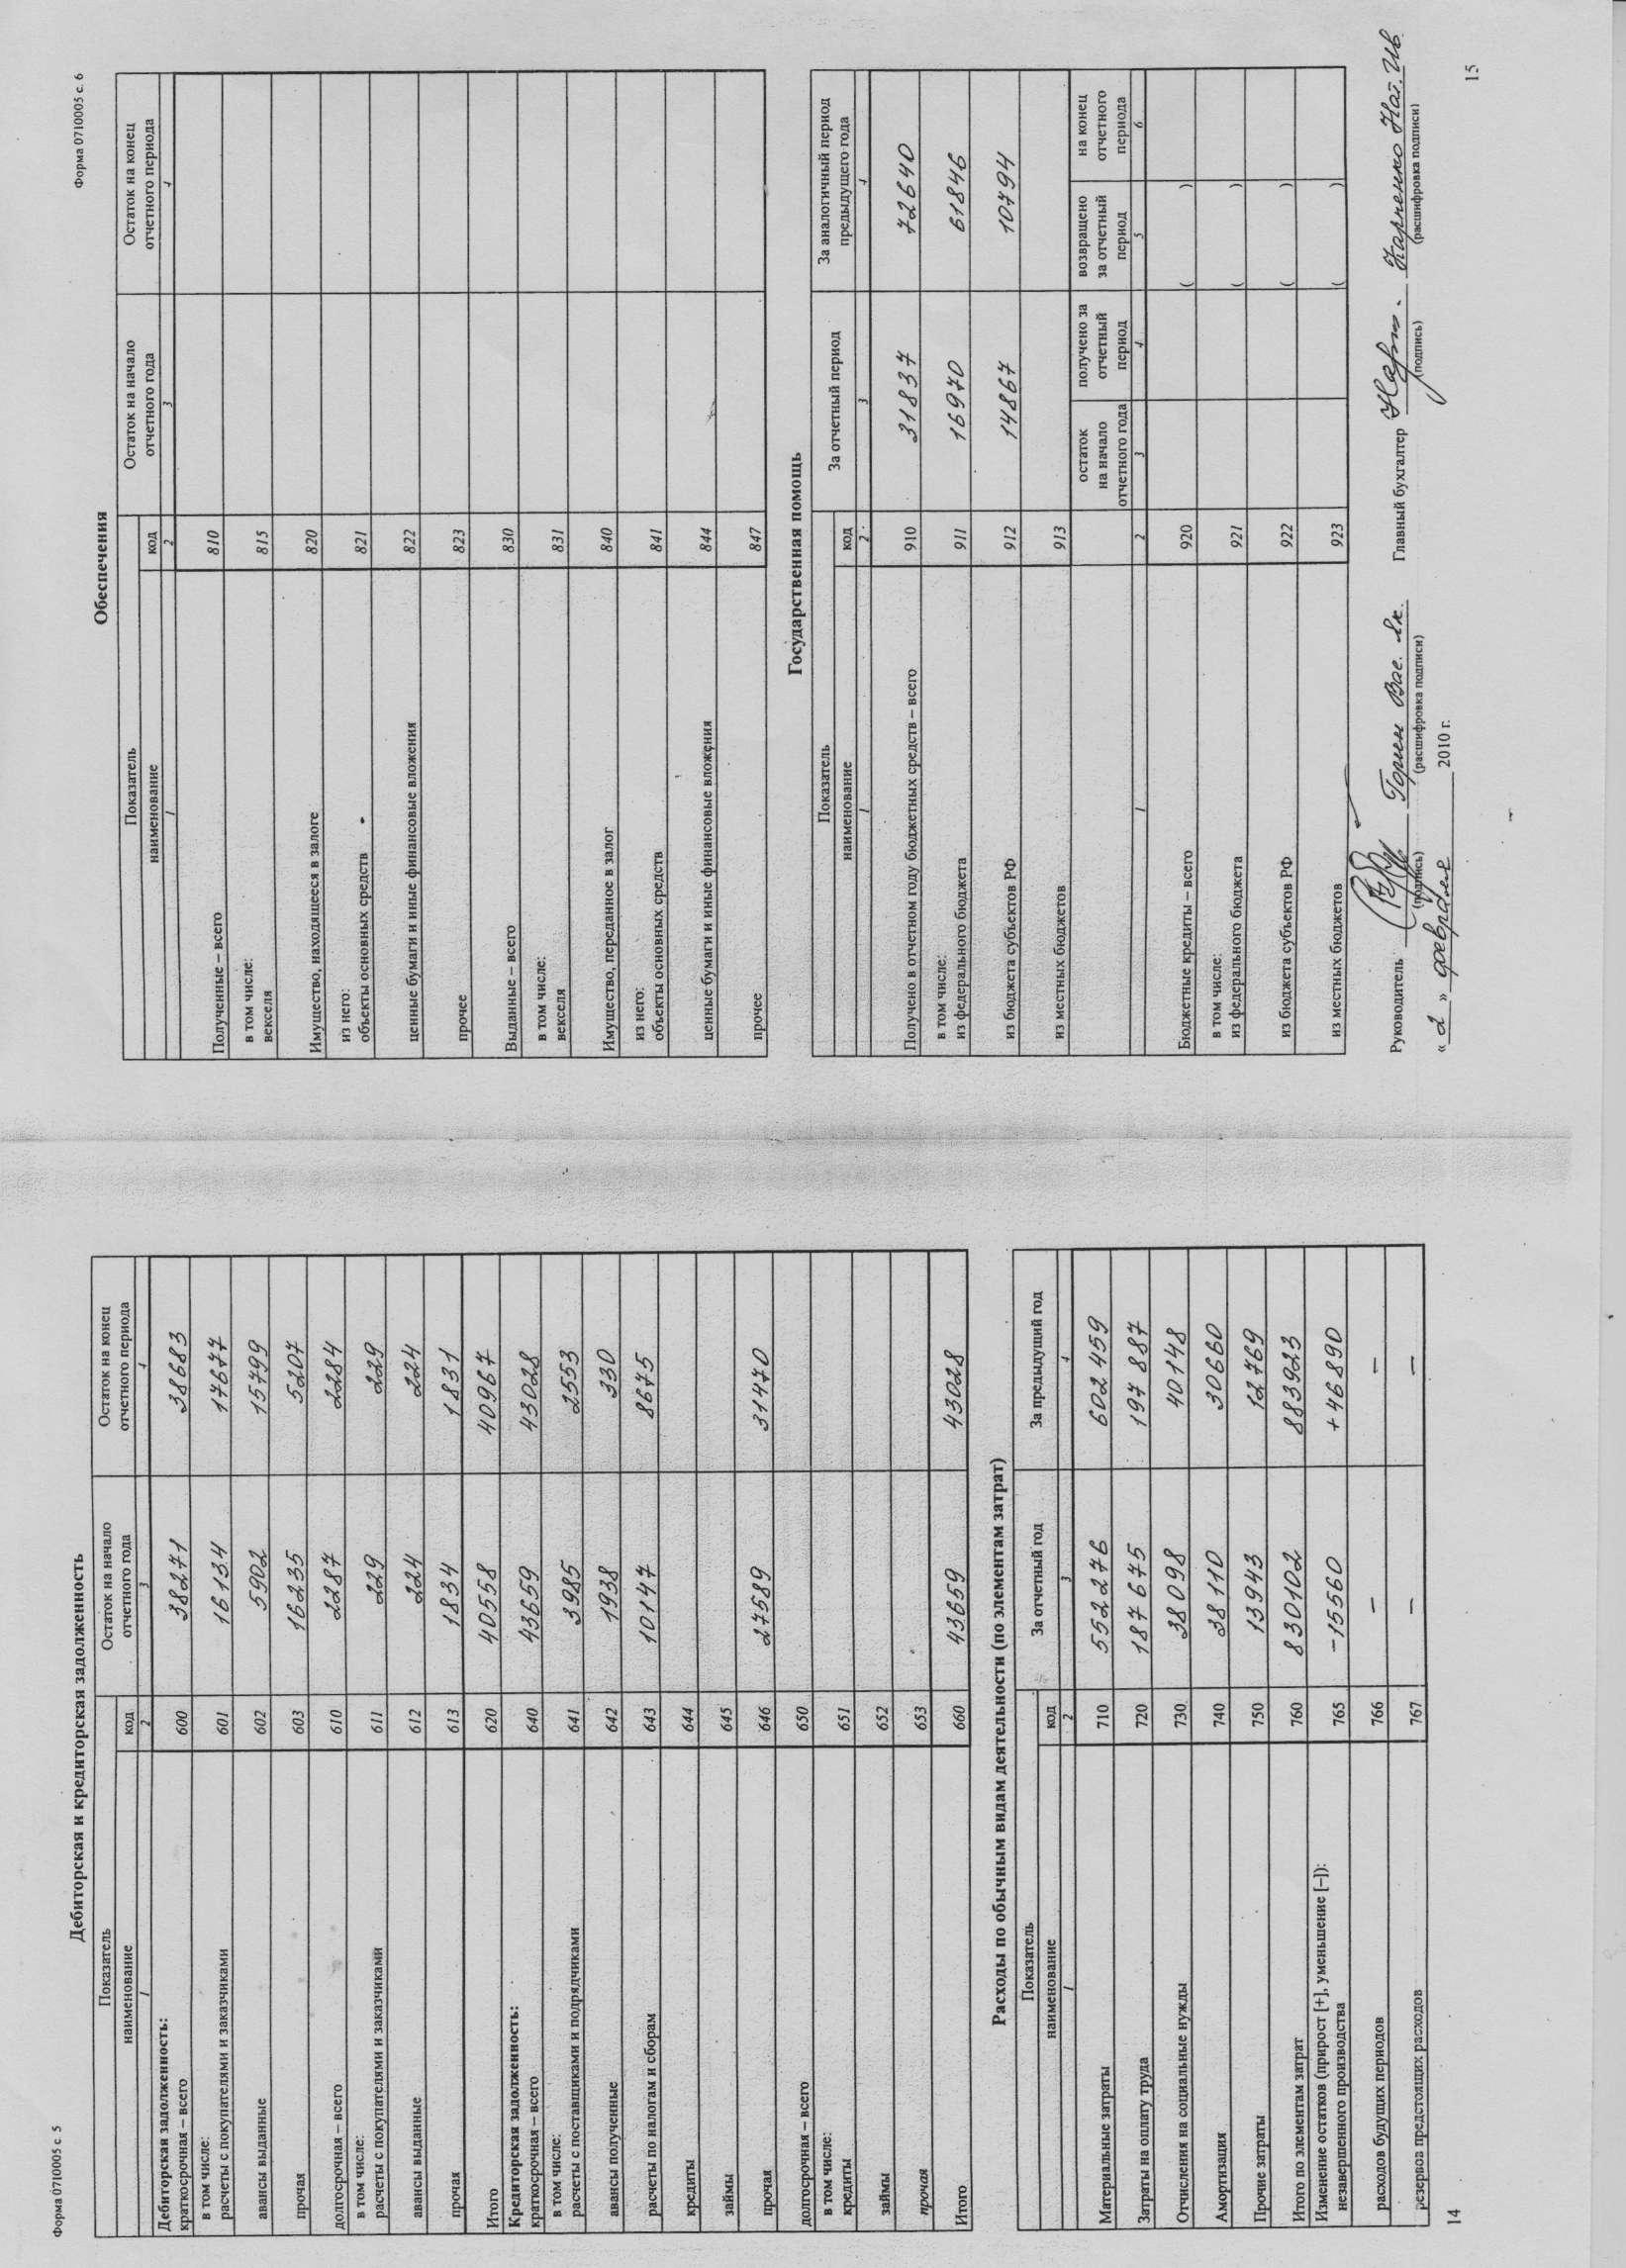 Форма 0710005 с. 5
Дебиторская и кредиторская задолженность
Показатель Остаток на начало отчетного года Остаток на конец отчетного периода
наименование код
1 2 3 4
Дебиторская задолженность:
краткосрочная – всего 600 38271 38683
в том числе:
расчеты с покупателями и заказчиками 601 16134 17677
авансы выданные 602 5902 15799
прочая 603 16235 5207
долгосрочная – всего 610 2287 2284
в том числе:
расчеты с покупателями и заказчиками 611 229 229
авансы выданные 612 224 224
прочая 613 1834 1831
Итого 620 40558 40967
Кредиторская задолженность:
краткосрочная – всего 640 43659 43028
в том числе:
расчеты с поставщиками и подрядчиками 641 3985 2553
авансы полученные 642 1938 330
расчеты по налогам и сборам 643 10147 8675
кредиты 644
займы 645
прочая 646 27589 31470
долгосрочная – всего 650
в том числе:
кредиты 651
займы 652
прочая 653
Итого 660 43659 43028
Расходы по обычным видам деятельности (по элементам затрат)
Показатель За отчетный год За предыдущий год
наименование код
1 2 3 4
Материальные затраты 710 552276 602459
Затраты на оплату труда 720 187675 197887
Отчисления на социальные нужды 730 38098 40148
Амортизация 740 38110 30660
Прочие затраты 750 13943 12769
Итого по элементам затрат 760 830102 883923
Изменение остатков (прирост [+], уменьшение [–]):
незавершенного производства 765 -15560 +46890
расходов будущих периодов 766 – –
резервов предстоящих расходов 767 – –
14
Форма 0710005 с. 6
Обеспечения
Показатель Остаток на начало отчетного года Остаток на конец отчетного периода
наименование код
1 2 3 4
Полученные – всего 810
в том числе:
векселя 815
Имущество, находящееся в залоге 820
из него:
объекты основных средств 821
ценные бумаги и иные финансовые вложения 822
прочее 823
Выданные – всего 830
в том числе:
векселя 831
Имущество, переданное в залог 840
из него:
объекты основных средств 841
ценные бумаги и иные финансовые вложения 844
прочее 847
Государственная помощь
Показатель За отчетный период За аналогичный период предыдущего года
наименование код
1 2 3 4
Получено в отчетном году бюджетных средств – всего 910 31837 72640
в том числе:
из федерального бюджета 911 16970 61846
из бюджета субъектов РФ 912 14867 10794
из местных бюджетов 913
остаток на начало отчетного года получено за отчетный период возвращено за отчетный период на конец отчетного периода
1 2 3 4 5 6
Бюджетные кредиты – всего 920 ( )
в том числе:
из федерального бюджета 921 ( )
из бюджета субъектов РФ 922 ( )
из местных бюджетов 923 ( )
Руководитель Горин Вас. Главный бухгалтер Карпенко Нат. Ив
(подпись) (расшифровка подписи) (подпись) (расшифровка подписи)
« 2 » февраля 2010 г.
15